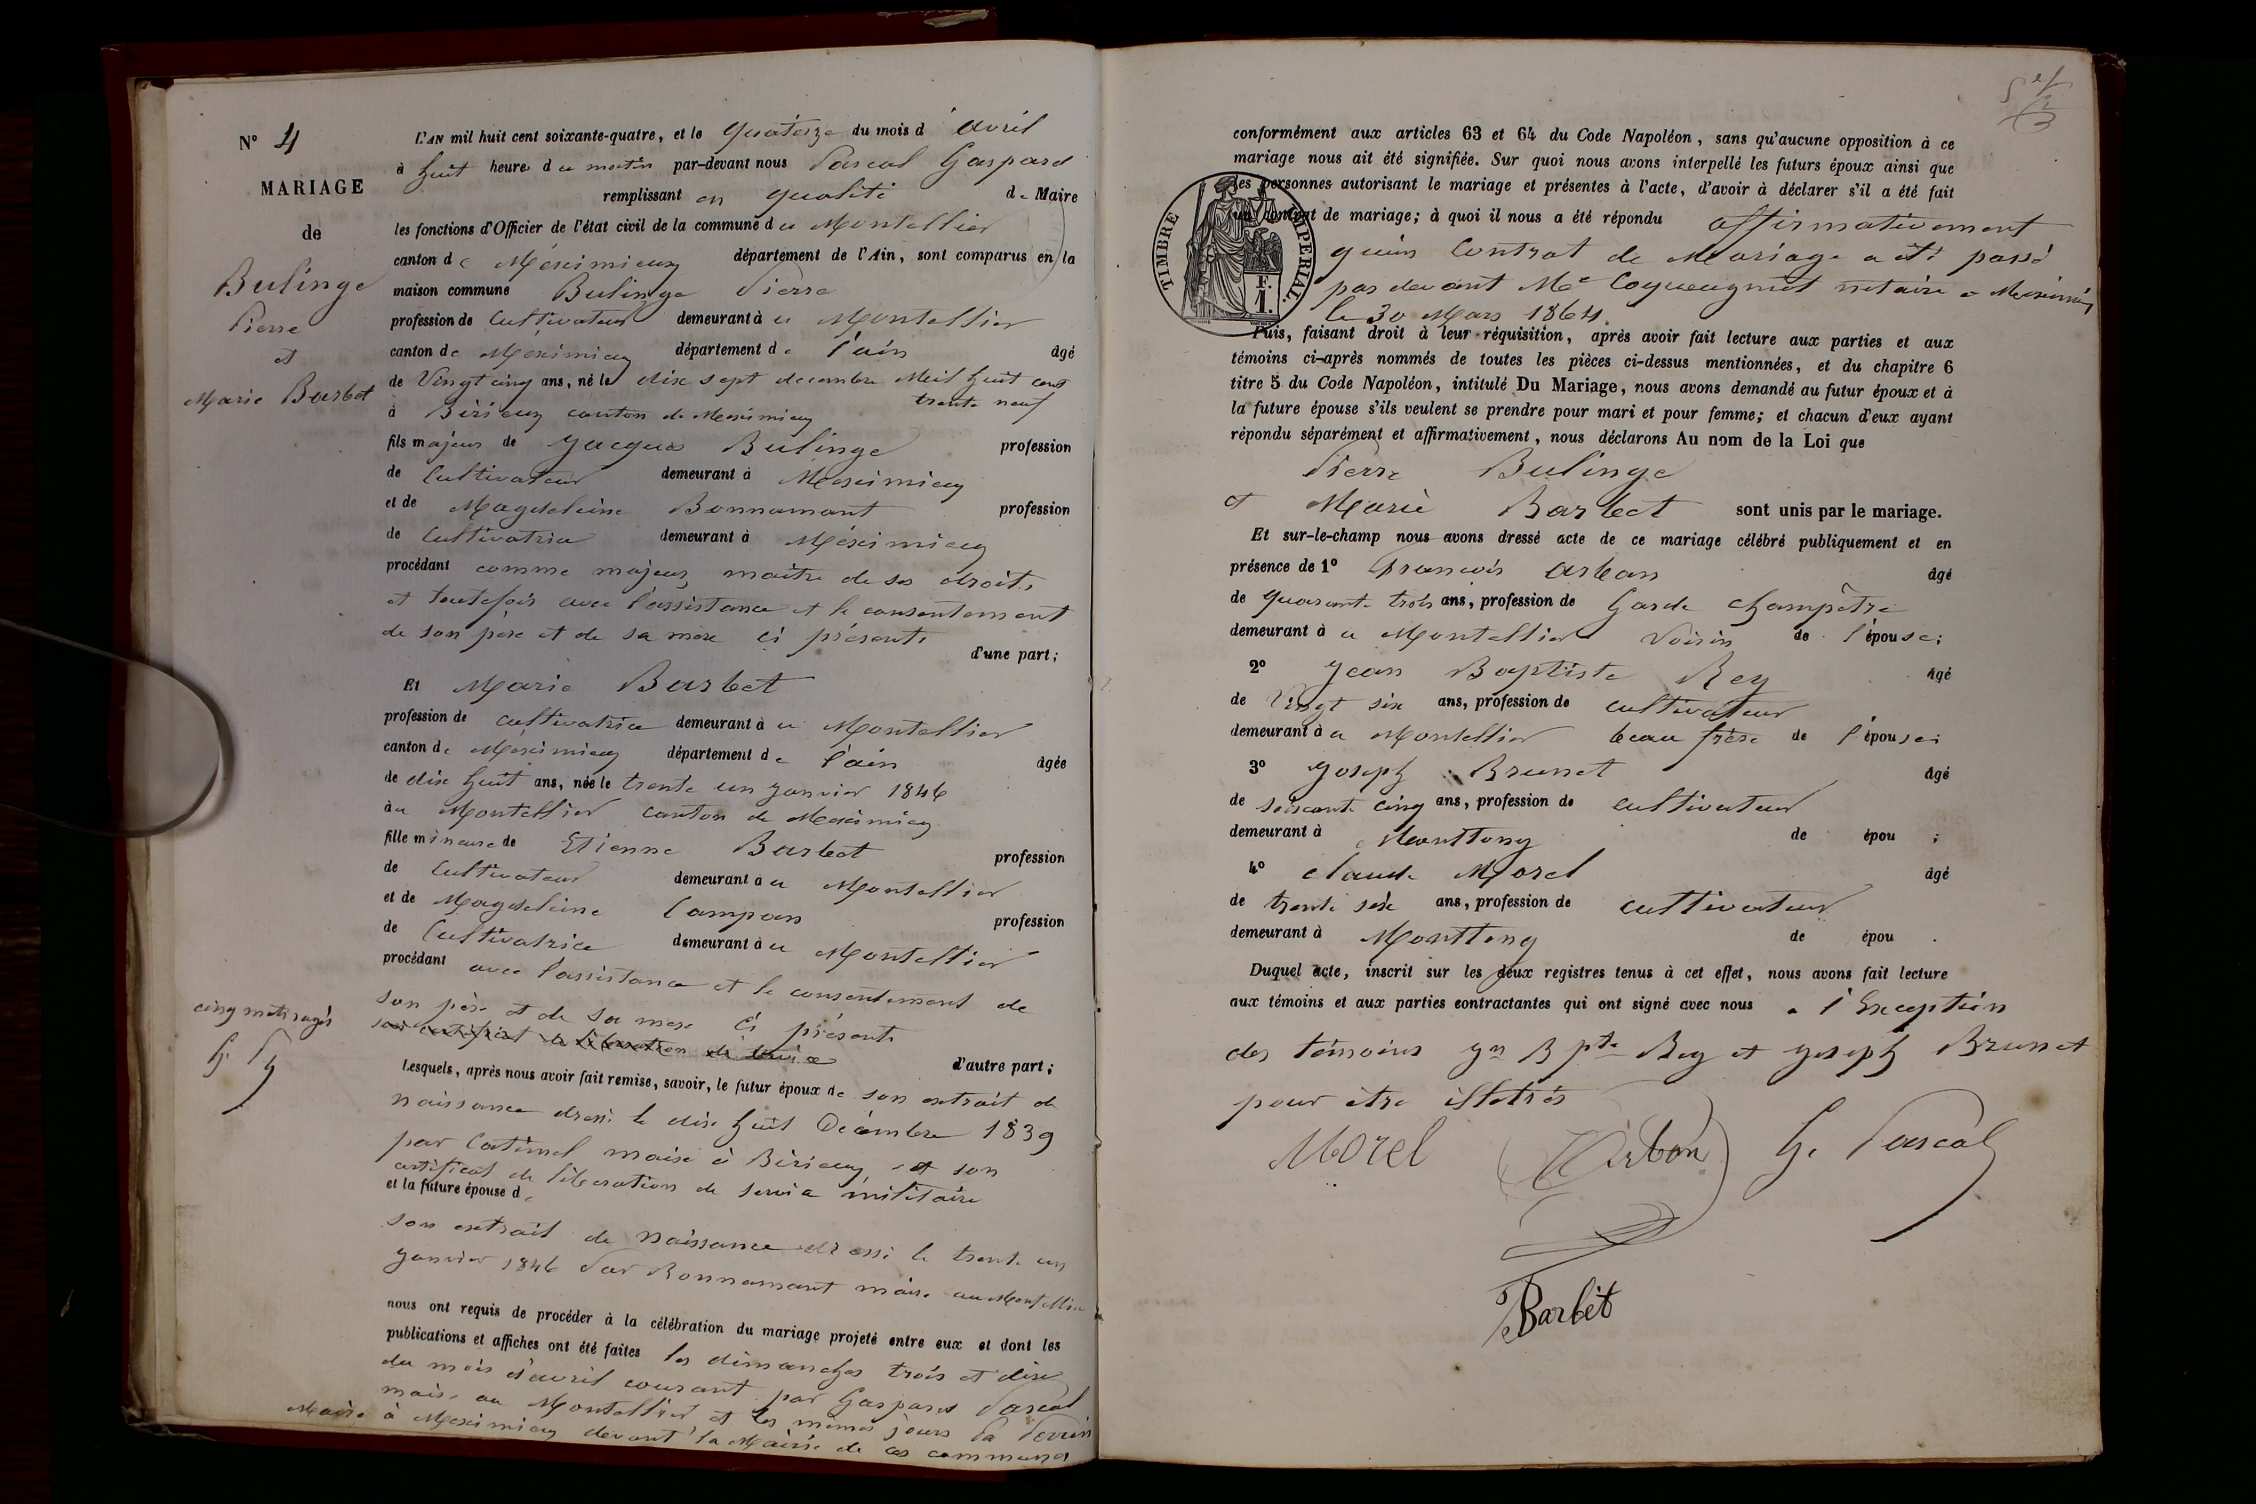 N° 4
MARIAGE
de
Bulinge
Pierre
et
Marie Barbet
cinq mots rayés
G. P
L'AN mil huit cent soixante-quatre, et le quatorze du mois d'avril
à huit heure du matin par-devant nous Pascal Gaspard
remplissant en qualité de Maire
les fonctions d'Officier de l'état civil de la commune du Montellier
canton de Méximieux département de l'Ain, sont comparus en la
maison commune Bulinge Pierre
profession de Cultivateur demeurant à u Montellier
canton de Méximieux département de l'ain âgé
de Vingt cinq ans, né le dixe sept decembre Meil huit cent
trente neuf
à Birieux canton de Meximieux
fils majeur de Jacques Bulinge profession
de Cultivateur demeurant à Méximieux
et de Magdeleine Bonnamant profession
de Cultivatrice demeurant à Méximieux
procédant comme majeur, maitre de ses droits,
et toutefois avec l'assistance et le consentement
de son père et de sa mère ci présents
d'une part;
Et Marie Barbet
profession de cultivatrice demeurant à u Montellier
canton de Méximieux département de l'ain âgée
de dixe huit ans, née le trente un Janvier 1846
à u Montellier canton de Meximieux
fille mineure de Etienne Barbet profession
de Cultivateur demeurant à u Montellier
et de Magdeleine Campan profession
de Cultivatrice demeurant à u Montellier
procédant avec l'assistance et le consentement de
son père et de sa mère ci présents
son certificat de liberation de service
d'autre part;
Lesquels, après nous avoir fait remise, savoir, le futur époux de son extrait de
naissance dressé le dixe huit Décembre 1839
par Catimel maire à Birieux et son
certificat de liberation de service militaire
et la future épouse de
son extrait de naissance dressé le trente un
Janvier 1846 Par Bonnamant maire au Montellier
nous ont requis de procéder à la célébration du mariage projeté entre eux et dont les
publications et affiches ont été faites les dimanches trois et dixe
du mois d'avril courant par Gaspard Pascal
maire au Montellier et les mêmes jours Pa Perrin
Maire à Meximieux devant la Mairie de ces communes
conformément aux articles 63 et 64 du Code Napoléon, sans qu'aucune opposition à ce
mariage nous ait été signifiée. Sur quoi nous avons interpellé les futurs époux ainsi que
les personnes autorisant le mariage et présentes à l'acte, d'avoir à déclarer s'il a été fait
un contrat de mariage; à quoi il nous a été répondu affirmativement
TIMBRE IMPERIAL.
F.
1.
qu'un Contrat de Mariage a été passé
par devant Me Coqueugniot notaire a Meximieux
le 30 Mars 1864
Puis, faisant droit à leur réquisition, après avoir fait lecture aux parties et aux
témoins ci-après nommés de toutes les pièces ci-dessus mentionnées, et du chapitre 6
titre 5 du Code Napoléon, intitulé Du Mariage, nous avons demandé au futur époux et à
la future épouse s'ils veulent se prendre pour mari et pour femme; et chacun d'eux ayant
répondu séparément et affirmativement, nous déclarons Au nom de la Loi que
Pierre Bulinge
et Marie Barbet sont unis par le mariage.
Et sur-le-champ nous avons dressé acte de ce mariage célébré publiquement et en
présence de 1° François Arban âgé
de quarante trois ans, profession de Garde champêtre
demeurant à u Montellier Voisin de l'épouse;
2° Jean Baptiste Rey âgé
de Vingt sixe ans, profession de cultivateur
demeurant à u Montellier beau frère de l'épouse;
3° Joseph Brunet âgé
de soixante cinq ans, profession de cultivateur
demeurant à Monttong de épou ;
4° Claude Morel âgé
de trente sixe ans, profession de cultivateur
demeurant à Monttong de épou .
Duquel acte, inscrit sur les deux registres tenus à cet effet, nous avons fait lecture
aux témoins et aux parties contractantes qui ont signé avec nous a l'Exception
des témoins Jn Bpte Rey et Joseph Brunet
pour être illetrés
Morel Arban G. Pascal
Barbet